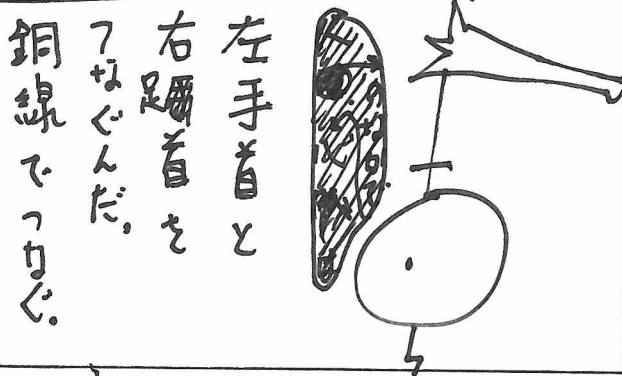 左手首と
右踝首を
つなぐんだ。
銅線でつなぐ。